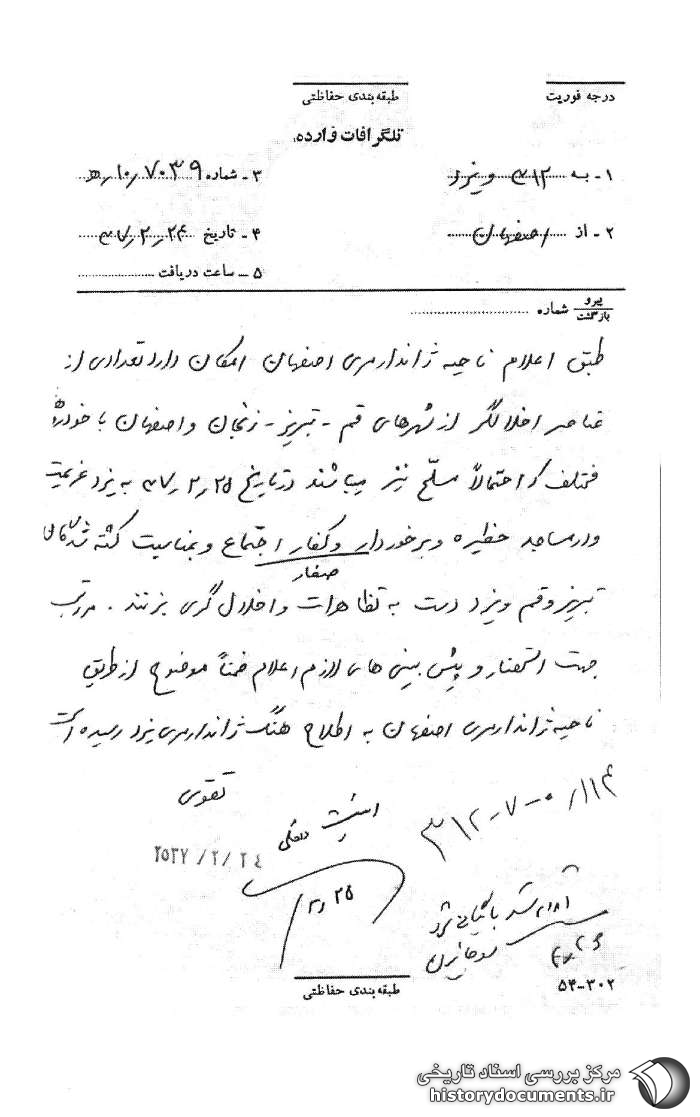 درجه فوریت
طبقه‌بندی حفاظتی
تلگرافات وارده
۱ - به ۳۱۲ و یزد
۳ - شماره ۷۰۳۹ /۱۰ ﻫ
۲ - از اصفهان
۴ - تاریخ ۳۷٫۲٫۲۴
۵ - ساعت دریافت
پیرو
بازگشت
شماره
طبق اعلام ناحیه ژاندارمری اصفهان امکان دارد تعدادی از
عناصر اخلالگر از شهرهای قم - تبریز - زنجان و اصفهان با خودروهای
مختلف که احتمالاً مسلح نیز میباشند در تاریخ ۳۷٫۲٫۲۵ به یزد عزیمت
و در مساجد حظیره و برخوردار و کفار اجتماع و بمناسبت کشته شدگان
صفار
تبریز و قم و یزد دست به تظاهرات و اخلال گری بزنند . مراتب
جهت استحضار و پیش بینی های لازم اعلام ضمناً موضوع از طریق
ناحیه ژاندارمری اصفهان به اطلاع هنگ ژاندارمری یزد رسیده است
تقوی
امنیت داخلی
۲۵۳۷ /۲/ ۲۴
۲٫۲۵
۵۴-۳۰۲
طبقه‌بندی حفاظتی
مرکز بررسی اسناد تاریخی
historydocuments.ir